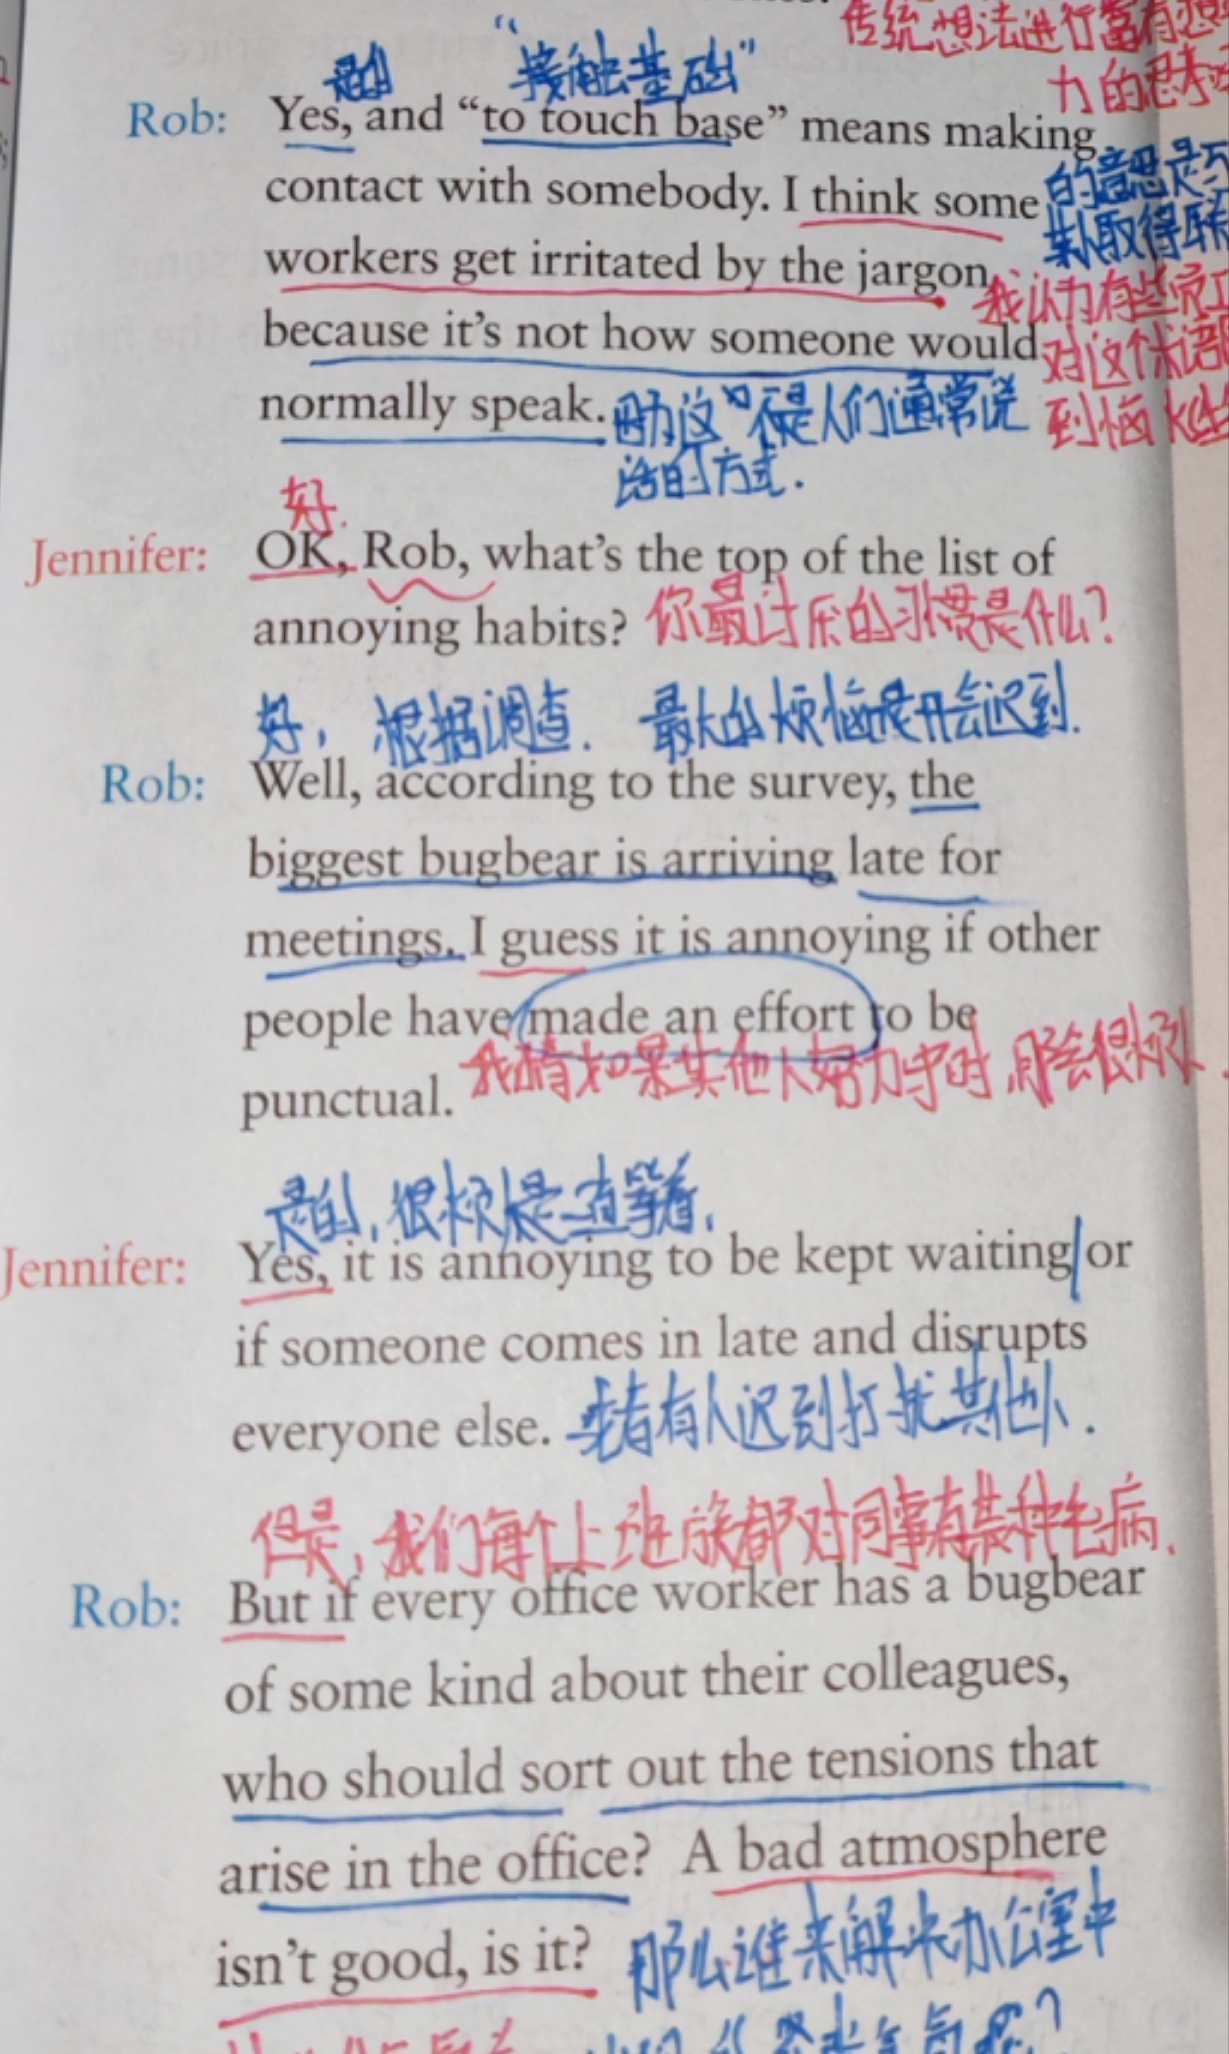 传统想法进行富有想
力的思考
是的 “接触基础”
Rob: Yes, and “to touch base” means making
contact with somebody. I think some
的意思是与
某人取得联
workers get irritated by the jargon
我认为有些员工
because it’s not how someone would
对这个术语
normally speak. 因为这不是人们通常说
到恼火
话的方式.
好.
Jennifer: OK, Rob, what’s the top of the list of
annoying habits? 你最讨厌的习惯是什么?
好, 根据调查. 最大的烦恼是开会迟到.
Rob: Well, according to the survey, the
biggest bugbear is arriving late for
meetings. I guess it is annoying if other
people have made an effort to be
punctual. 我猜如果其他人努力守时,那会很烦人.
是的,很烦人是一直等着,
Jennifer: Yes, it is annoying to be kept waiting/or
if someone comes in late and disrupts
everyone else. 或者有人迟到打扰其他人.
但是,我们每个上班族都对同事有某种毛病.
Rob: But if every office worker has a bugbear
of some kind about their colleagues,
who should sort out the tensions that
arise in the office? A bad atmosphere
isn’t good, is it? 那么谁来解决办公室中